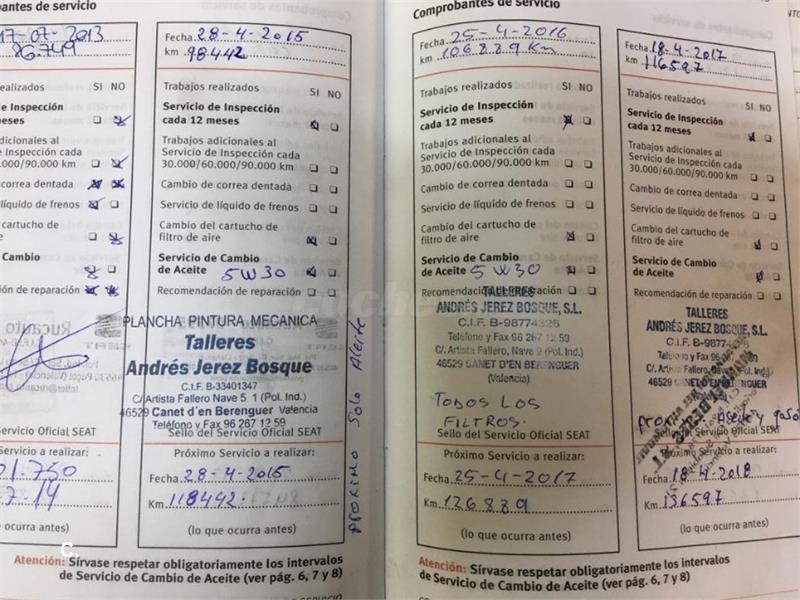 antes de servicio
17-07-2013
86.749
SI NO
de Inspección
meses
adicionales al
de Inspección cada
.000/90.000 km
correa dentada
líquido de frenos
cartucho de
Cambio
ón de reparación
Rucauto
Servicio Oficial SEAT
Servicio a realizar:
01.750
7.14
que ocurra antes)
Fecha 28-4-2015
km 98442
Trabajos realizados SI NO
Servicio de Inspección
cada 12 meses
Trabajos adicionales al
Servicio de Inspección cada
30.000/60.000/90.000 km
Cambio de correa dentada
Servicio de líquido de frenos
Cambio del cartucho de
filtro de aire
Servicio de Cambio
de Aceite 5W30
Recomendación de reparación
PLANCHA PINTURA MECANICA
Talleres
Andrés Jerez Bosque
C.I.F. B-33401347
C/Artista Fallero Nave 5 1 (Pol. Ind.)
46529 Canet d'en Berenguer Valencia
Teléfono y Fax 96 267 12 59
Sello del Servicio Oficial SEAT
Próximo Servicio a realizar:
Fecha 28-4-2015
Km 118442
(lo que ocurra antes)
PROXIMO SOLO Aceite
Atención: Sírvase respetar obligatoriamente los intervalos
de Servicio de Cambio de Aceite (ver pág. 6, 7 y 8)
Comprobantes de servicio
Fecha 25-4-2016
km 106839 Km
Trabajos realizados SI NO
Servicio de Inspección
cada 12 meses
Trabajos adicionales al
Servicio de Inspección cada
30.000/60.000/90.000 km
Cambio de correa dentada
Servicio de líquido de frenos
Cambio del cartucho de
filtro de aire
Servicio de Cambio
de Aceite 5W30
Recomendación de reparación
TALLERES
ANDRÉS JEREZ BOSQUE, S.L.
C.I.F. B-98774326
Teléfono y Fax 96 267 12 59
C/. Artista Fallero, Nave 9 (Pol. Ind.)
46529 CANET D'EN BERENGUER
(Valencia)
TODOS LOS
FILTROS.
Sello del Servicio Oficial SEAT
Próximo Servicio a realizar:
Fecha 25-4-2017
Km 126839
(lo que ocurra antes)
Fecha 18-4-2017
km 116597
Trabajos realizados SI NO
Servicio de Inspección
cada 12 meses
Trabajos adicionales al
Servicio de Inspección cada
30.000/60.000/90.000 km
Cambio de correa dentada
Servicio de líquido de frenos
Cambio del cartucho de
filtro de aire
Servicio de Cambio
de Aceite
Recomendación de reparación
TALLERES
ANDRÉS JEREZ BOSQUE, S.L.
C.I.F. B-9877
Teléfono y Fax 96
C/. Artista Fallero, Nave
46529 CANET D'EN BERENGUER
Aceite y
Servicio Oficial SEAT
Próximo Servicio a realizar:
Fecha 18-4-2018
Km 136597
(lo que ocurra antes)
Atención: Sírvase respetar obligatoriamente los intervalos
de Servicio de Cambio de Aceite (ver pág. 6, 7 y 8)